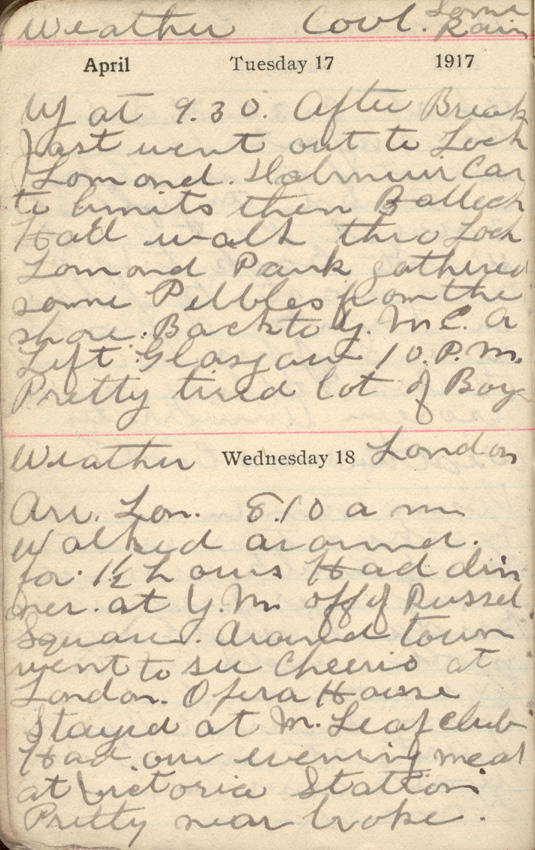 Weather Cool. Some Rain
April Tuesday 17 1917
Up at 9.30. After Break
fast went out to Loch
Lomond. Car
to limits then Balloch
Had walk thro Loch
Lomond Park gathered
some Pebbles from the
shore. Back to Y.M.C.A
Left Glasgow 10.P.M.
Pretty tired lot of Boys
Weather Wednesday 18 London
Arr. Lon. 8.10 a m
Walked around.
for 1½ hours Had din
ner. at Y.M. off of Russel
Square. Around town
went to see Cheerio at
London. Opera House
Stayed at M. Leaf club
Had our evening meal
at Victoria Station
Pretty near broke.